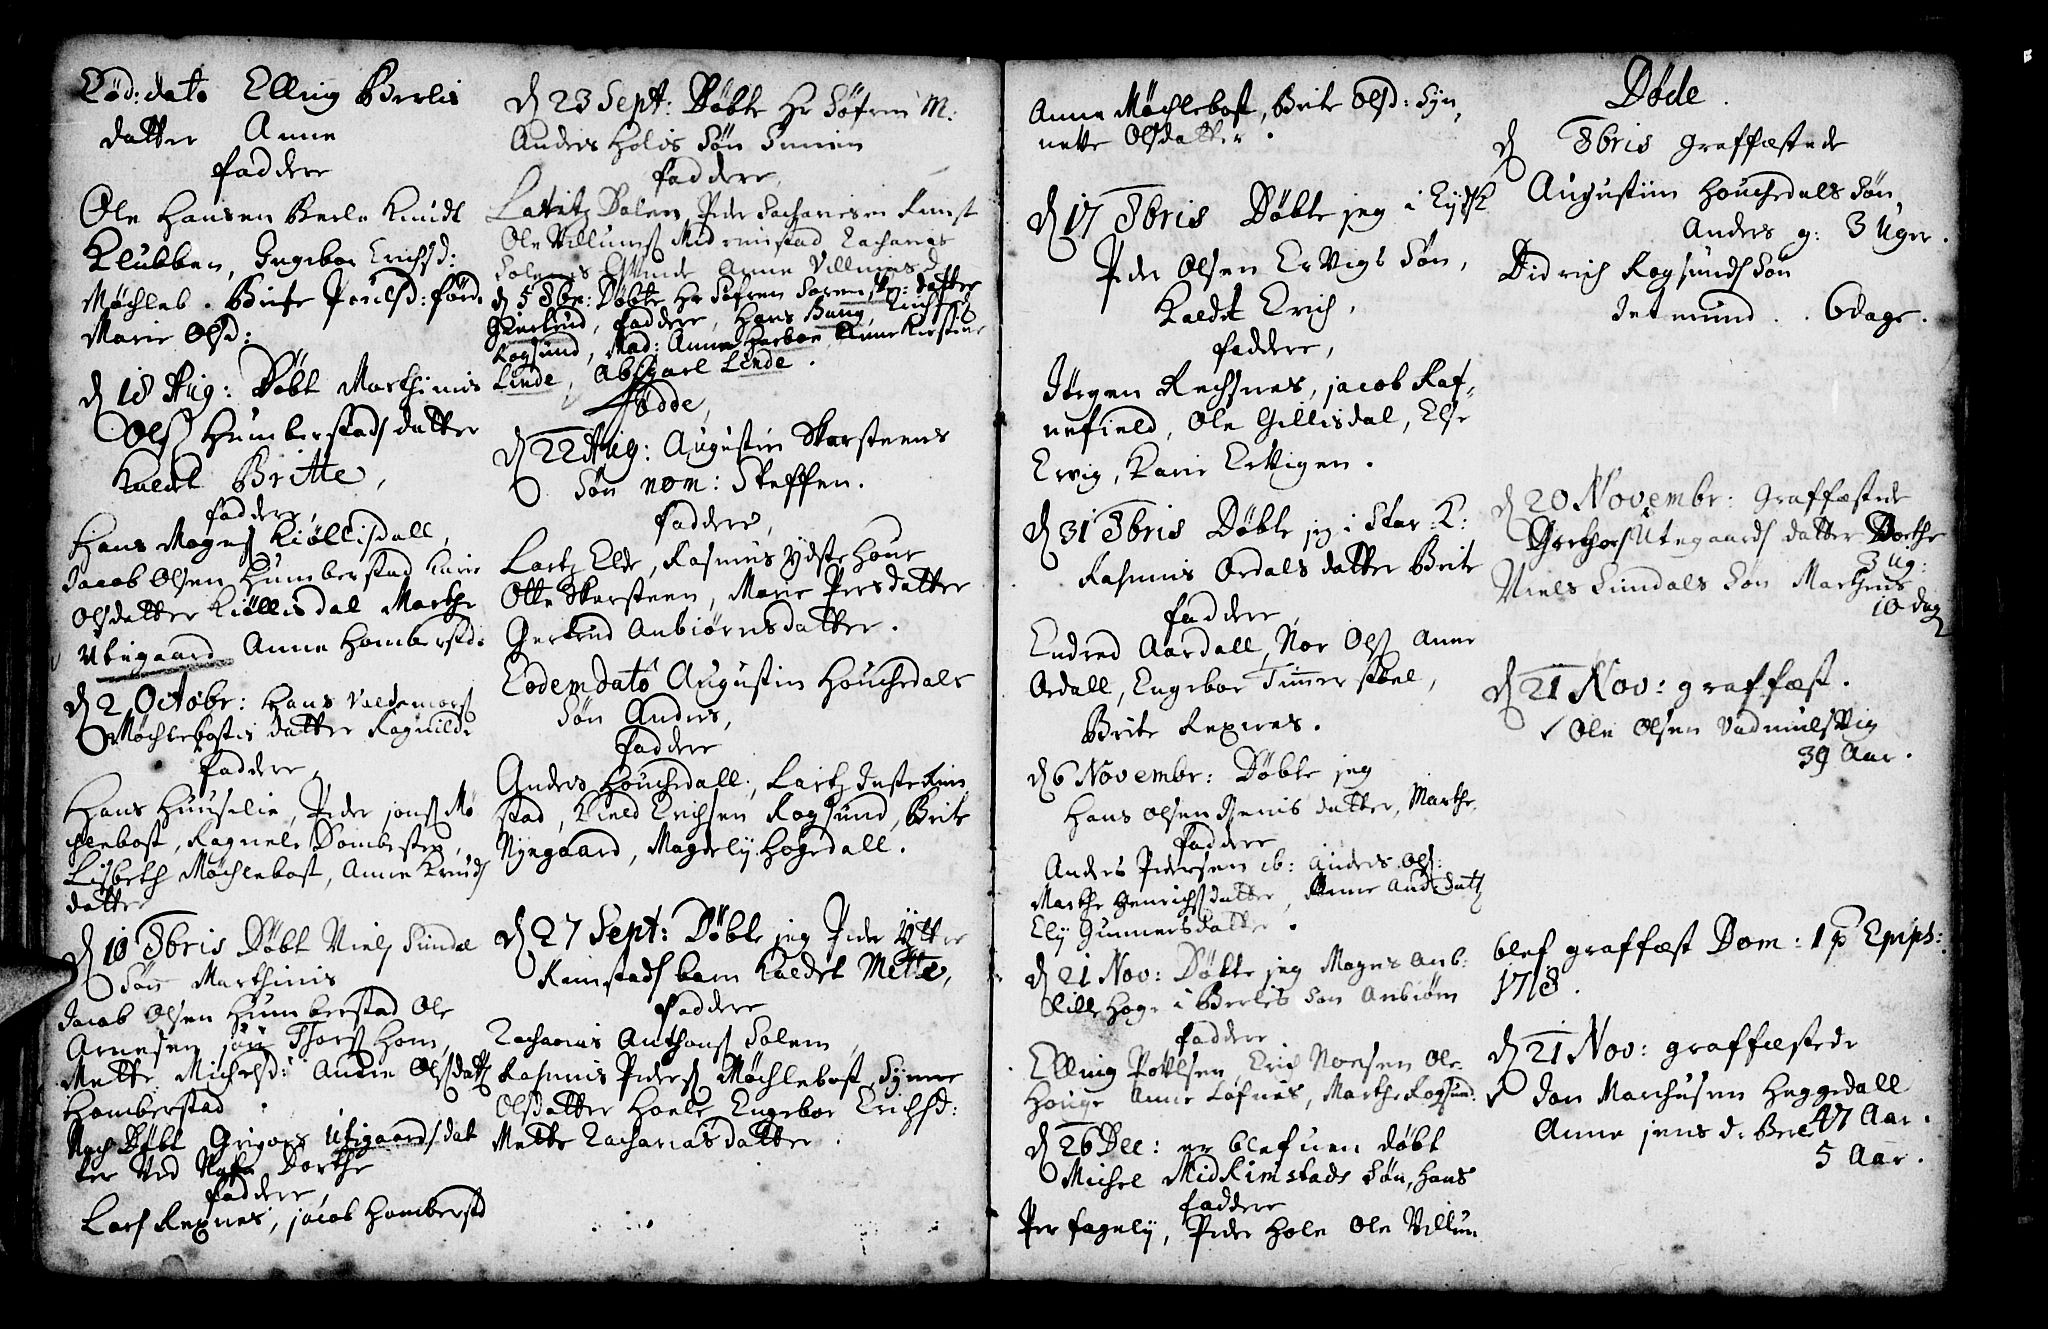 Eod: dato Elling Berlis
datter Anne
faddere
Ole Hansen Berle Knudt
Klubben, Ingebor Erichsd:
Møchleb. Birte Poulsd:
Marie Olsd:
D 18 Aug: Døbt Marthinus
Ols Humberstads datter
Kaldt Britte,
faddere,
Hans Mogns Kiøllisdall,
Jacob Olsen Humberstad Karie
Olsdatter Kiøllisdal Marthe
Utigaard Anne Homberstd:
D 2 Octobr: Hans Valdemors
Møchlebostis datter Ragnilde
faddere,
Hans Huuselie, Peder jons Mø
chlebost, Ragnele Dombesten,
Lisbeth Møchlebost, Anne Knuds
datter
D 10 8bris Døbt Niels Sundal
Søn Marthinus
Jacob Olsen Humberstad Ole
Arnesen Thors Hom,
Mette Michelsd: Anne Olsdatt
Homberstad
Noch Døbt Gregors Utigaards dat
ter Ved Nafn Dorthe
faddere,
Lars Rexnes, jacob Homberstd
D 23 Sept: Døbte Hr Søfren M:
Anders Holvis Søn Simen
faddere,
Laritz Dalen, Peder Sachariesen Rimst
Ole Villums Midrimstad Zacharias
Solemes Anne Villumsd
D 5 8br: Døbte Hr Søfren Sorenss: datter
Giertrud, faddere, Hans Bang,
Rogsund, Mad: Anna Harboe Anne Kirstine
Linde, Absgarl Linde.
Fødde,
D 22 Aug: Augustin Skarsteens
Søn nom: Steffen.
faddere,
Lartz Elde, Rasmus Ydstehoue
Otte Skarsteen, Marie Persdatter
Gertrud Anbiørnsdatter.
Eodem dato Augustin Houchedals
Søn Anders,
faddere
Anders Houchedall, Lartz Indre Rim
stad, Kield Erichsen Rogsund, Brite
Nyegaard, Magdely Hogedall.
D 27 Sept: Døbte jeg Peder Ytter
Rimstads barn Kaldet Mette,
faddere
Zacharias Anthons Solem,
Rasmus Peders Møchlebost, Synne
Olsdatter Hoele, Engebor Erichsd:
Mette Zachariasdatter.
Anne Møchlebost, Brite Olsd: Syn,
nette Olsdatter.
D 17 8bris Døbte jeg i
Peder Olsen Ervigs Søn,
Kaldet Erich,
faddere,
Jörgen Rechsnes, jacob Raf,
nefield, Ole Gillisdal, Else
Ervig, Karie Ervigen.
D 31 8bris Døbte jeg i Star: K:
Rasmus Ordals datter Brite
faddere,
Endred Aardall, Nor Ols Anne
Ordall, Engebor Timmerstoel,
Brite Rexnes.
D 6 Novembr: Døbte jeg
Hans Olsen datter, Marthe,
faddere
Anders Pedersen ib: Anders Ols:
Marthe Henrichsdatter, Anne And:datt
Ely Gunnersdatter.
D 21 Nov: Døbte jeg Mogns Anb:
Lille Hoge i Berles Søn Anbiørn
faddere
Elling Povlsen, Erich Norsen Ole
Houge Anne Lofnes, Marthe Rogsund.
D 26 Dec: er blefuen døbt
Michel Midrimstads Søn, Hans
faddere
Per fagnely, Peder Hole Ole Villum
Døde.
D 8bris graffæstede
Augustiin Houchedals Søn,
Anders g: 3 Uger.
Didrich Rogsunds Søn
Jetmund.. 6 dage.
D 20 Novembr: Graffæstede
Utegaards datter Dorthe
3 Ug:
Niels Sundals Søn Marthius
10 dag
D 21 Nov: graffæst.
Ole Olsen Vadmuls Vig
39 Aar.
blef graffæst Dom: 1 p Epiph:
1718.
D 21 Nov: graffæstede
Jon Marchusen Heggedall
47 Aar.
Anne jens d: Berle
5 Aar.